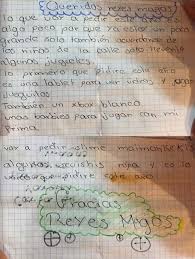 Queridos reyes magos
lo que voy a pedir este año es
algo poco por que ya estoy un poco
grande solo también acuerdense de
los niños de la calle solo llevenle
algunos juguetes.
lo primero que pidire este año
es una tablet para ver videos y
jueguitos
También un xbox blanco
unas barbies para jugar con mi
prima.
voy a pedir slime
algunos
pidire este año
Gracias
Reyes Magos